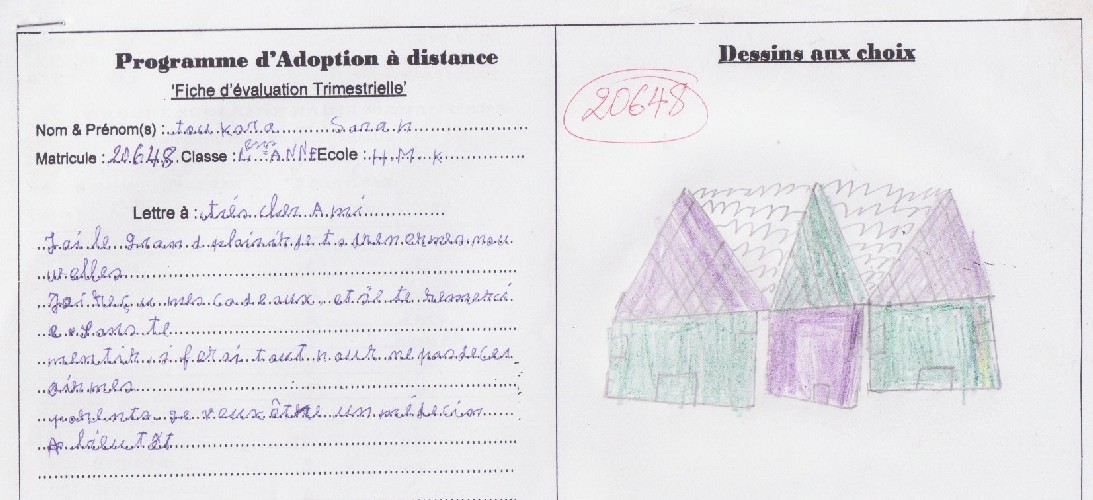 Programme d'Adoption à distance
'Fiche d'évaluation Trimestrielle'
Nom & Prénom(s) : toukara Saran
Matricule : 20648 Classe : 4em ANNE Ecole : H M K
Lettre à : trés cher Ami
J'ai le grand plaisir je te prener mes nou
velles
J'ai reçu mes cadeaux et je te remerci
e sans te
mentir
parents je veux être un médecin
A bieutôt
Dessins aux choix
20648